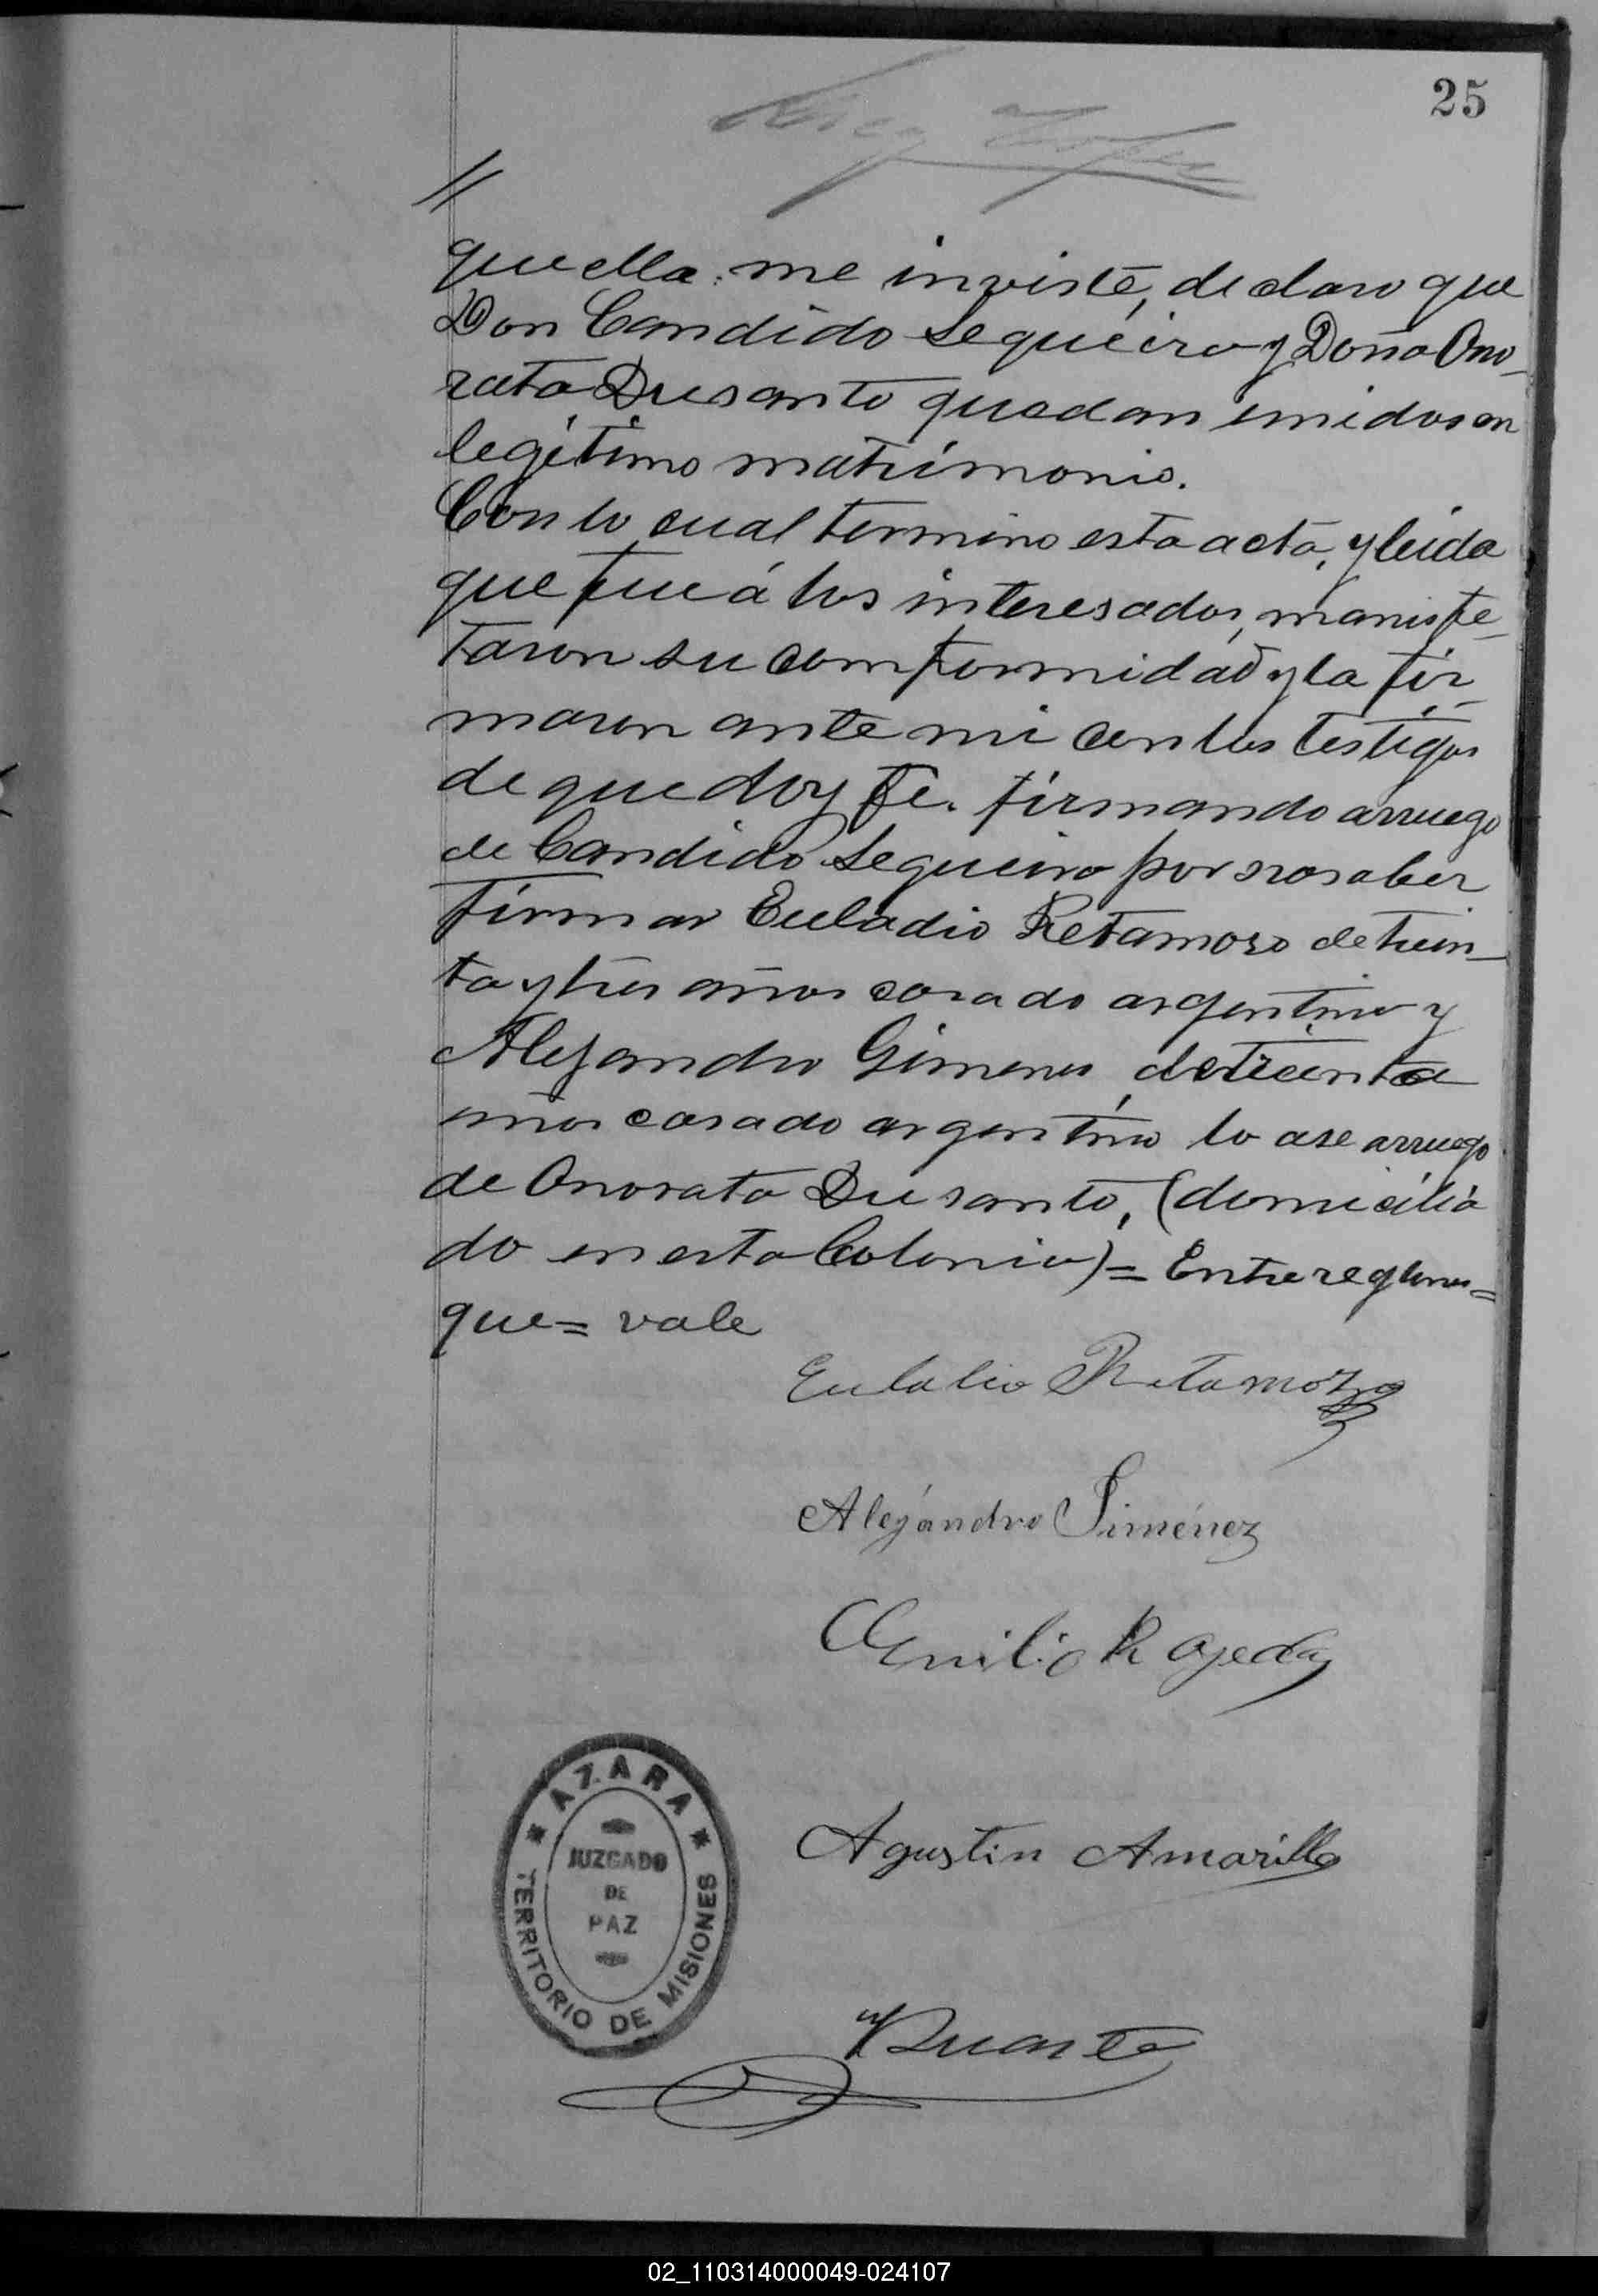 25
//
que ella me inviste, declaro que
Don Candido Sequeira y Doña Ono-
rata Dusanto quedan unidos en
legítimo matrimonio.
Con lo cual termino esta acta, y leida
que fue á los interesados, manisfe-
taron su comformidad y la fir-
maron ante mi con los testigos
de que doy fe. firmando arruego
de Candido Sequeira por no saber
firmar Euladio Retamoso de trein-
ta y tres años casado argentino y
Alejandro Gimenes, de treinta
años casado argentino lo ase arruego
de Onorata Dusanto, (domicilia
do en esta Colonia) = Entre reglones=
que= vale
Eulalio Retamozo
Alejandro Jiménez
Emilio R Ojeda
Agustin Amarilla
Duarte
* AZARA *
JUZGADO
DE
PAZ
TERRITORIO DE MISIONES
02_110314000049-024107